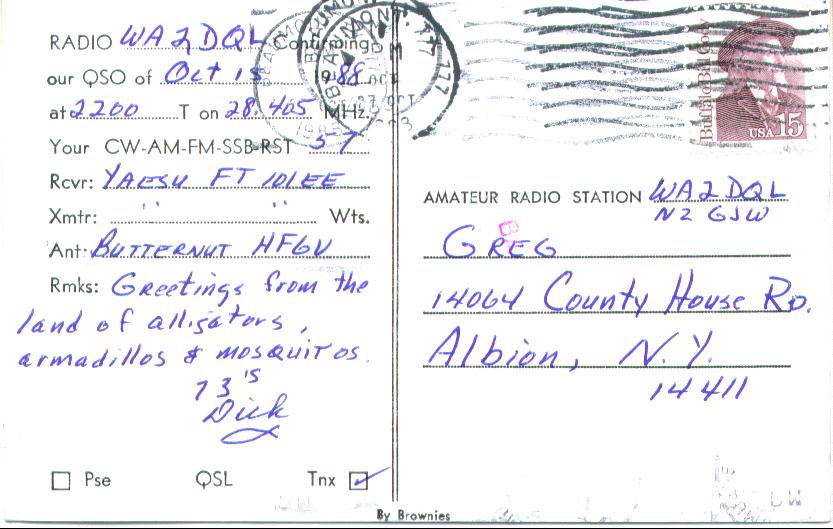 RADIO WA2DQL Confirming
our QSO of Oct 15 1988
at 2200 T on 28.405 MHz.
Your CW-AM-FM-SSB-RST 57
Rcvr: YAESU FT 101EE
Xmtr: " " Wts.
Ant: BUTTERNUT HF6V
Rmks: Greetings from the
land of alligators,
armadillos & MOSQUITOS.
73's
Dick
Pse QSL Tnx
By Brownies
Buffalo Bill Cody
USA 15
AMATEUR RADIO STATION WA2DQL
N2GJW
GREG
14064 County House RD.
Albion, N.Y.
14411